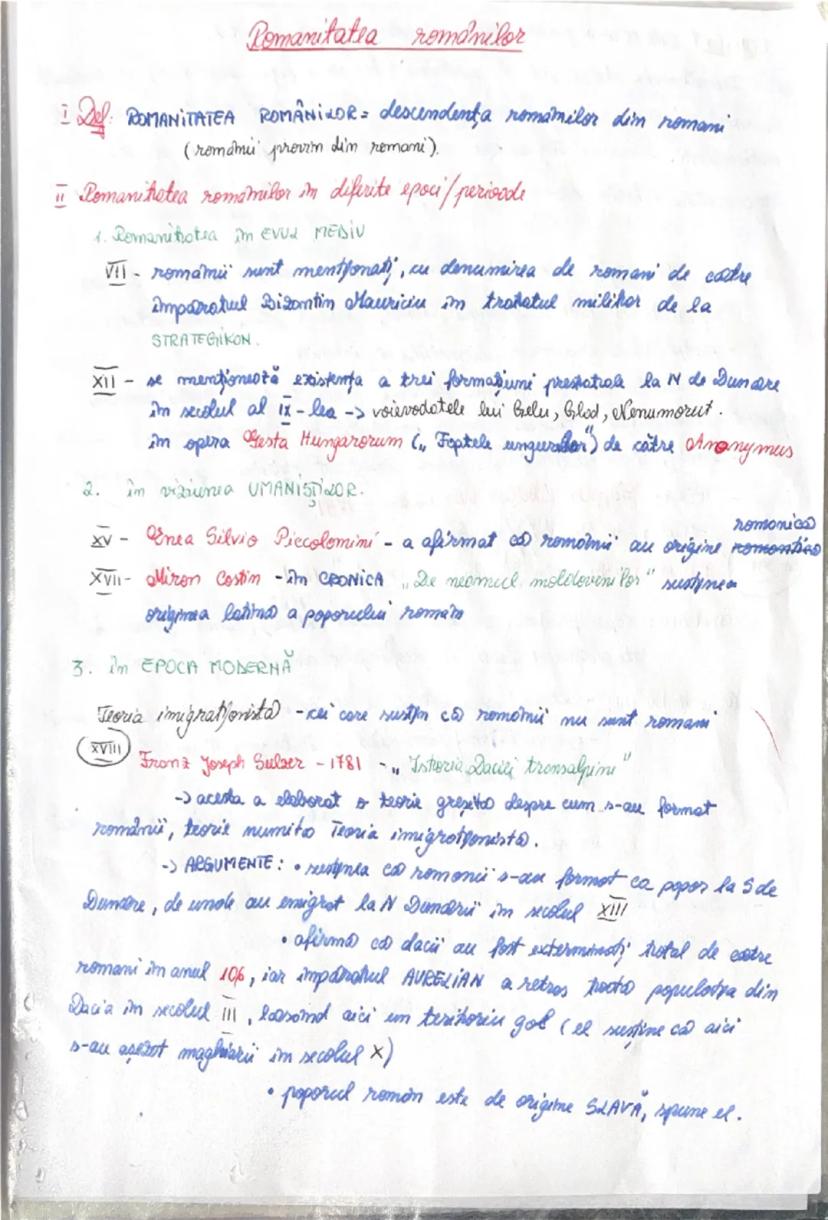 Romanitatea românilor
I Def: ROMANITATEA ROMÂNILOR = descendența românilor din romani
(românii provin din romani).
II Romanitatea românilor în diferite epoci/perioade
1. Romanitatea în EVUL MEDIU
VII - românii sunt menționați, cu denumirea de romani de către
împăratul Bizantin Mauriciu în tratatul militar de la
STRATEGIKON.
XII - se menționează existența a trei formațiuni prestatale la N de Dunăre
în secolul al IX-lea -> voievodatele lui Gelu, Glad, Menumorut.
în opera Gesta Hungarorum („Faptele ungurilor”) de către Anonymus
2. în viziunea UMANIȘTILOR.
romanică
XV - Enea Silvio Piccolomini - a afirmat că românii au origine
XVII - Miron Costin - în CRONICA „De neamul moldovenilor” susținea
originea latină a poporului român
3. în EPOCA MODERNĂ
Teoria imigraționistă - cei care susțin că românii nu sunt romani
XVIII
Franz Joseph Sulzer - 1781 - „Istoria Daciei transalpine”
-> acesta a elaborat o teorie greșită despre cum s-au format
românii, teorie numită Teoria imigraționistă.
-> ARGUMENTE: • susținea că romanii s-au format ca popor la S de
Dunăre, de unde au emigrat la N Dunării în secolul XIII
• afirmă că dacii au fost exterminați total de către
romani în anul 106, iar împăratul AURELIAN a retras toată populația din
Dacia în secolul III, lăsând aici un teritoriu gol (el susține că aici
s-au așezat maghiarii în secolul X)
• poporul român este de origine SLAVĂ, spune el.